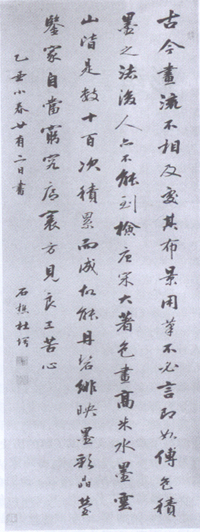 古今畫流不相及處其布景用筆不必言即如傅色積
墨之法後人亦不能到檢唐宋大著色畫高米水墨雲
山皆是數十百次積累而成故能丹碧緋映墨彩晶瑩
鑒家自當窮究底裏方見良工苦心
乙亥小春廿有二日書
石樵杜堮